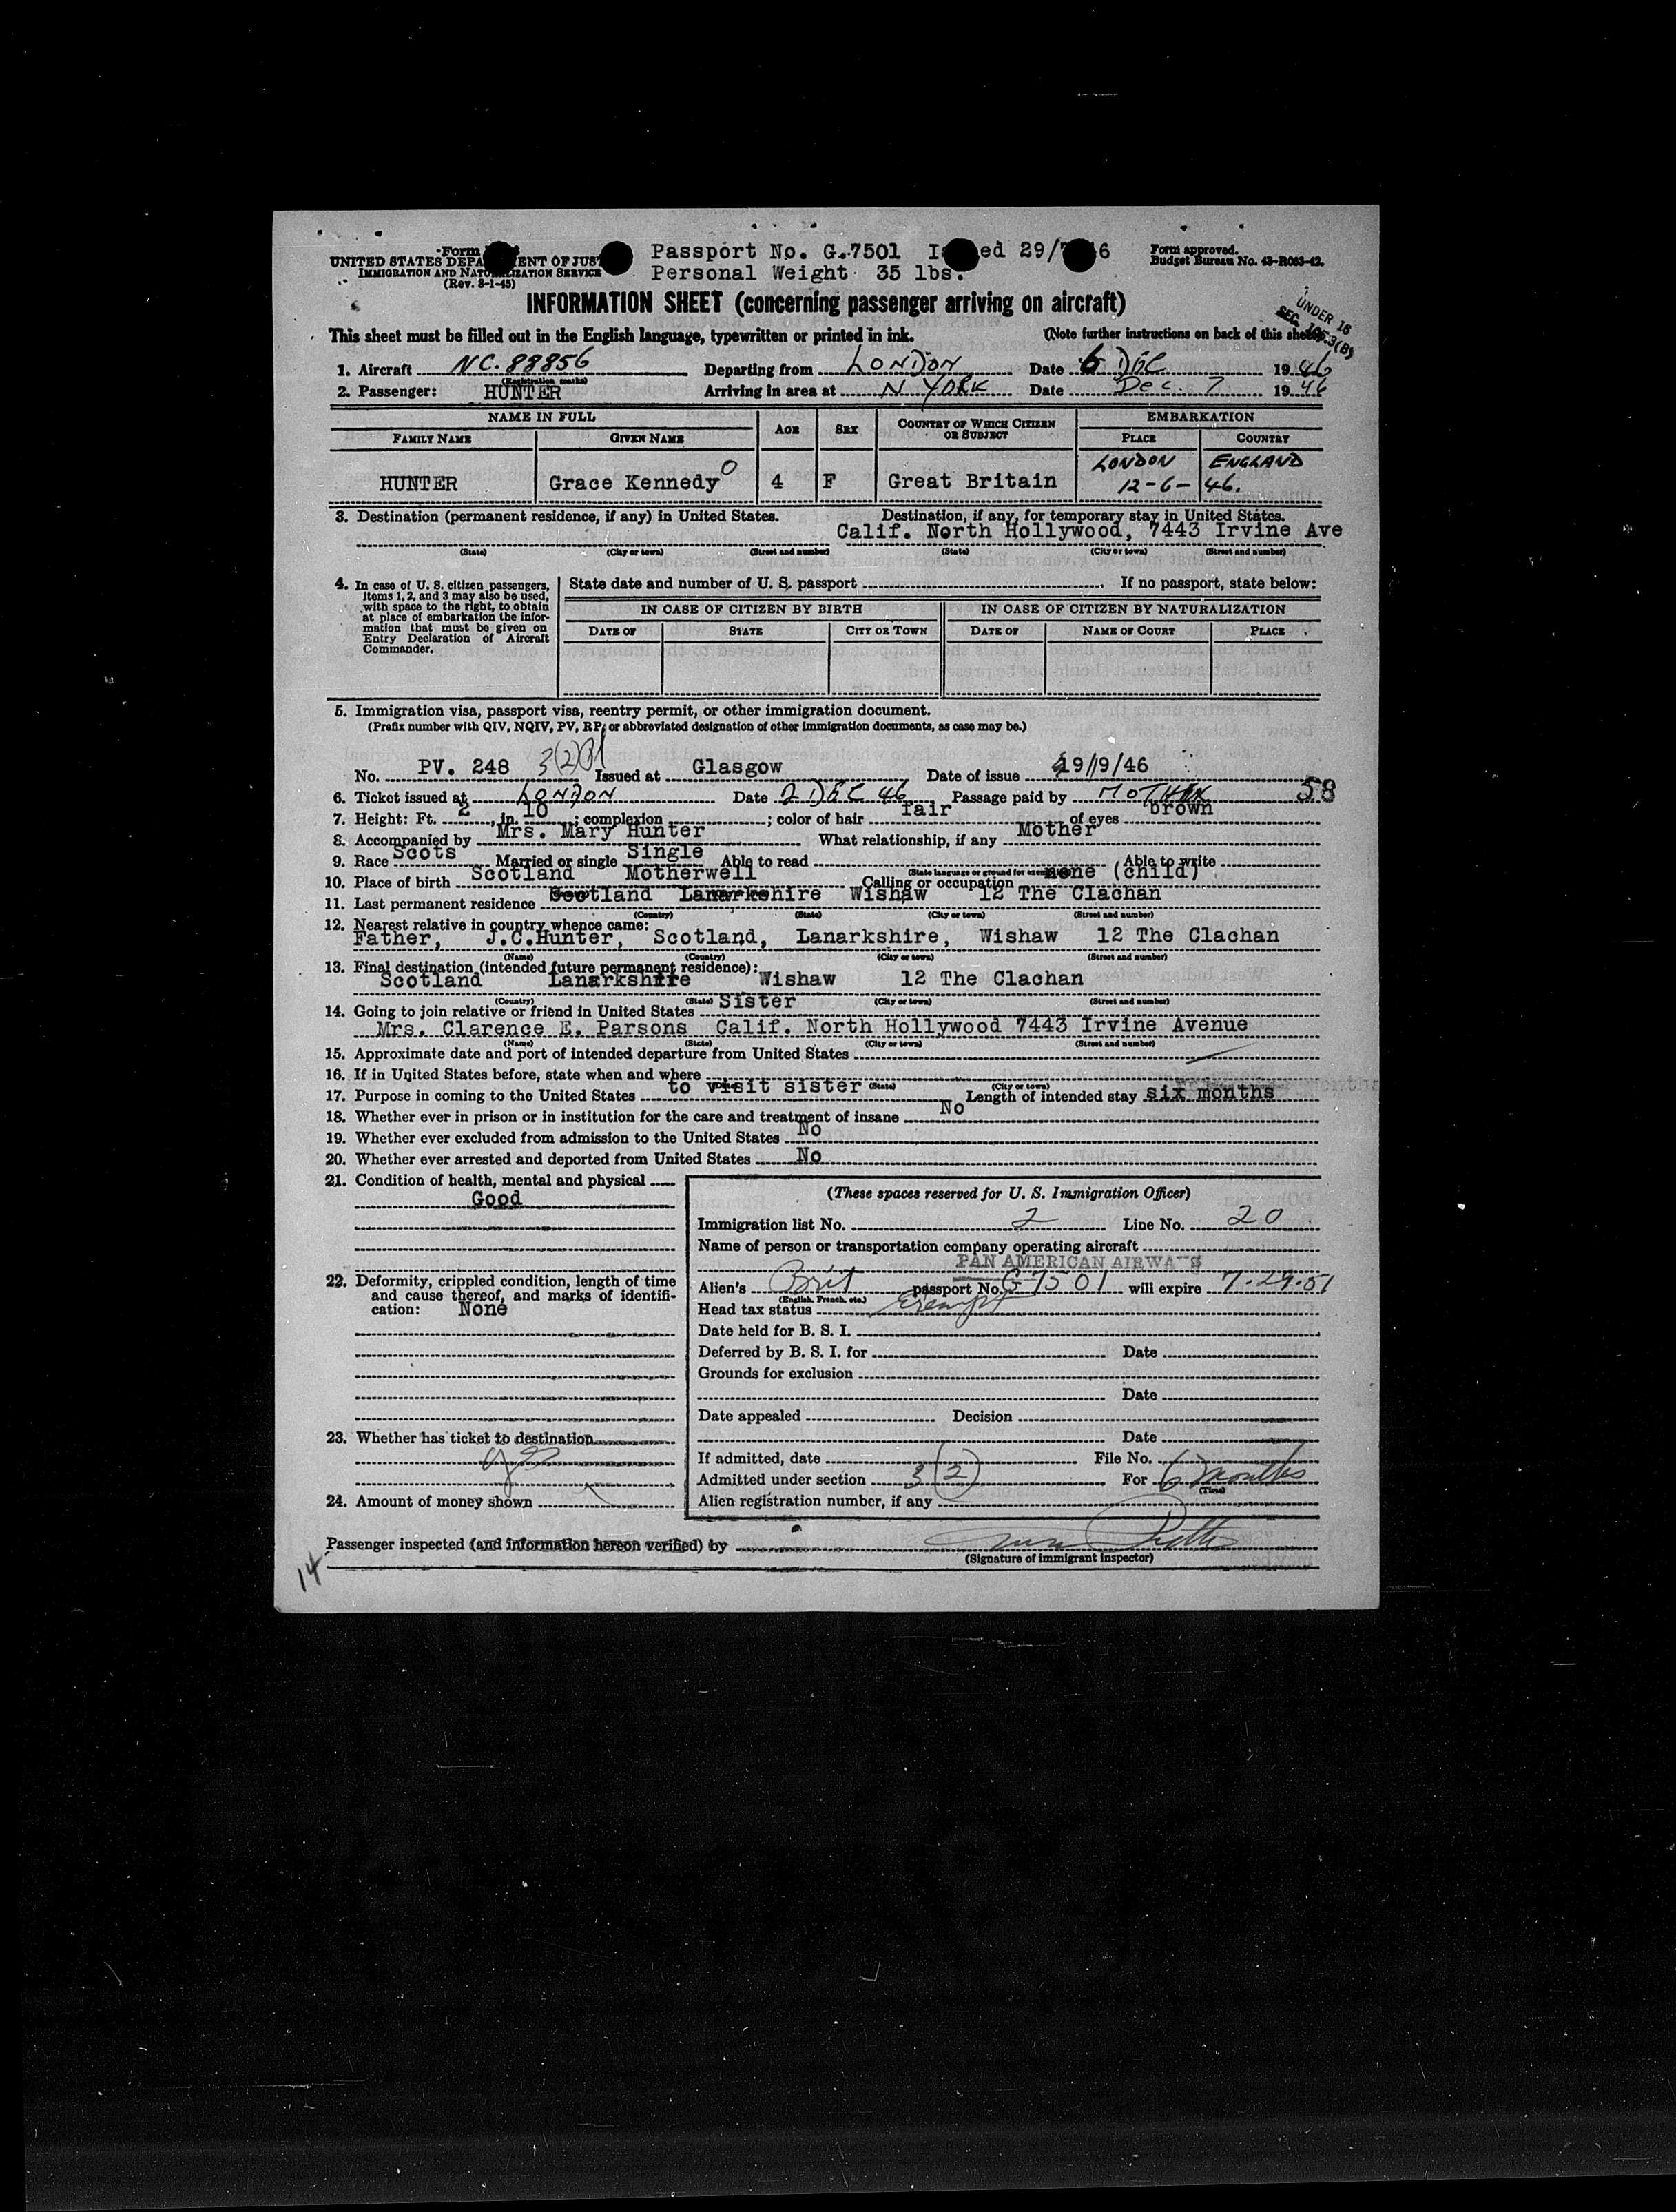 Form
Passport No. G.7501 I ed 29/7 6
Form approved.
UNITED STATES DEPA ENT OF JUST
Budget Bureau No. 43-R063-42.
IMMIGRATION AND NATURALIZATION SERVICE
Personal Weight 35 lbs.
(Rev. 8-1-45)
INFORMATION SHEET (concerning passenger arriving on aircraft)
UNDER 16
SEC. 105.3(B)
This sheet must be filled out in the English language, typewritten or printed in ink.
(Note further instructions on back of this sheet)
1. Aircraft NC. 88856 Departing from LONDON Date 6 DEC 1946
(Registration marks)
2. Passenger: HUNTER Arriving in area at N YORK Date Dec. 7 1946
NAME IN FULL AGE SEX COUNTRY OF WHICH CITIZEN OR SUBJECT EMBARKATION
FAMILY NAME GIVEN NAME PLACE COUNTRY
LONDON ENGLAND
HUNTER Grace Kennedy 0 4 F Great Britain 12-6- 46.
3. Destination (permanent residence, if any) in United States. Destination, if any, for temporary stay in United States.
Calif. North Hollywood, 7443 Irvine Ave
(State) (City or town) (Street and number) (State) (City or town) (Street and number)
4. In case of U. S. citizen passengers, items 1, 2, and 3 may also be used, with space to the right, to obtain at place of embarkation the information that must be given on Entry Declaration of Aircraft Commander.
State date and number of U. S. passport If no passport, state below:
IN CASE OF CITIZEN BY BIRTH IN CASE OF CITIZEN BY NATURALIZATION
DATE OF STATE CITY OR TOWN DATE OF NAME OF COURT PLACE
5. Immigration visa, passport visa, reentry permit, or other immigration document.
(Prefix number with QIV, NQIV, PV, RP, or abbreviated designation of other immigration documents, as case may be.)
No. PV. 248 3(2) Issued at Glasgow Date of issue 19/9/46
6. Ticket issued at LONDON Date 2 DEC 46 Passage paid by MOTHER 58
7. Height: Ft. 2, in. 10; complexion ; color of hair fair of eyes brown
8. Accompanied by Mrs. Mary Hunter What relationship, if any Mother
9. Race Scots Married or single Single Able to read Able to write
(State language or ground for exemption)
10. Place of birth Scotland Motherwell Calling or occupation none (child)
11. Last permanent residence Scotland Lanarkshire Wishaw 12 The Clachan
(Country) (State) (City or town) (Street and number)
12. Nearest relative in country whence came:
Father, J.C.Hunter, Scotland, Lanarkshire, Wishaw 12 The Clachan
(Name) (Country) (City or town) (Street and number)
13. Final destination (intended future permanent residence):
Scotland Lanarkshire Wishaw 12 The Clachan
(Country) (State) (City or town) (Street and number)
14. Going to join relative or friend in United States Sister
Mrs. Clarence E. Parsons Calif. North Hollywood 7443 Irvine Avenue
(Name) (State) (City or town) (Street and number)
15. Approximate date and port of intended departure from United States
16. If in United States before, state when and where
(Date) (State) (City or town)
17. Purpose in coming to the United States to visit sister Length of intended stay six months
18. Whether ever in prison or in institution for the care and treatment of insane No
19. Whether ever excluded from admission to the United States No
20. Whether ever arrested and deported from United States No
21. Condition of health, mental and physical
Good
22. Deformity, crippled condition, length of time and cause thereof, and marks of identification: None
23. Whether has ticket to destination
yes
24. Amount of money shown
(These spaces reserved for U. S. Immigration Officer)
Immigration list No. 2 Line No. 20
Name of person or transportation company operating aircraft
PAN AMERICAN AIRWAYS
Alien's Brit passport No. G 7501 will expire 7-29-51
(English, French, etc.)
Head tax status Exempt
Date held for B. S. I.
Deferred by B. S. I. for Date
Grounds for exclusion
Date
Date appealed Decision
Date
If admitted, date File No.
Admitted under section 3(2) For 6 months
(Time)
Alien registration number, if any
Passenger inspected (and information hereon verified) by
(Signature of immigrant inspector)
14